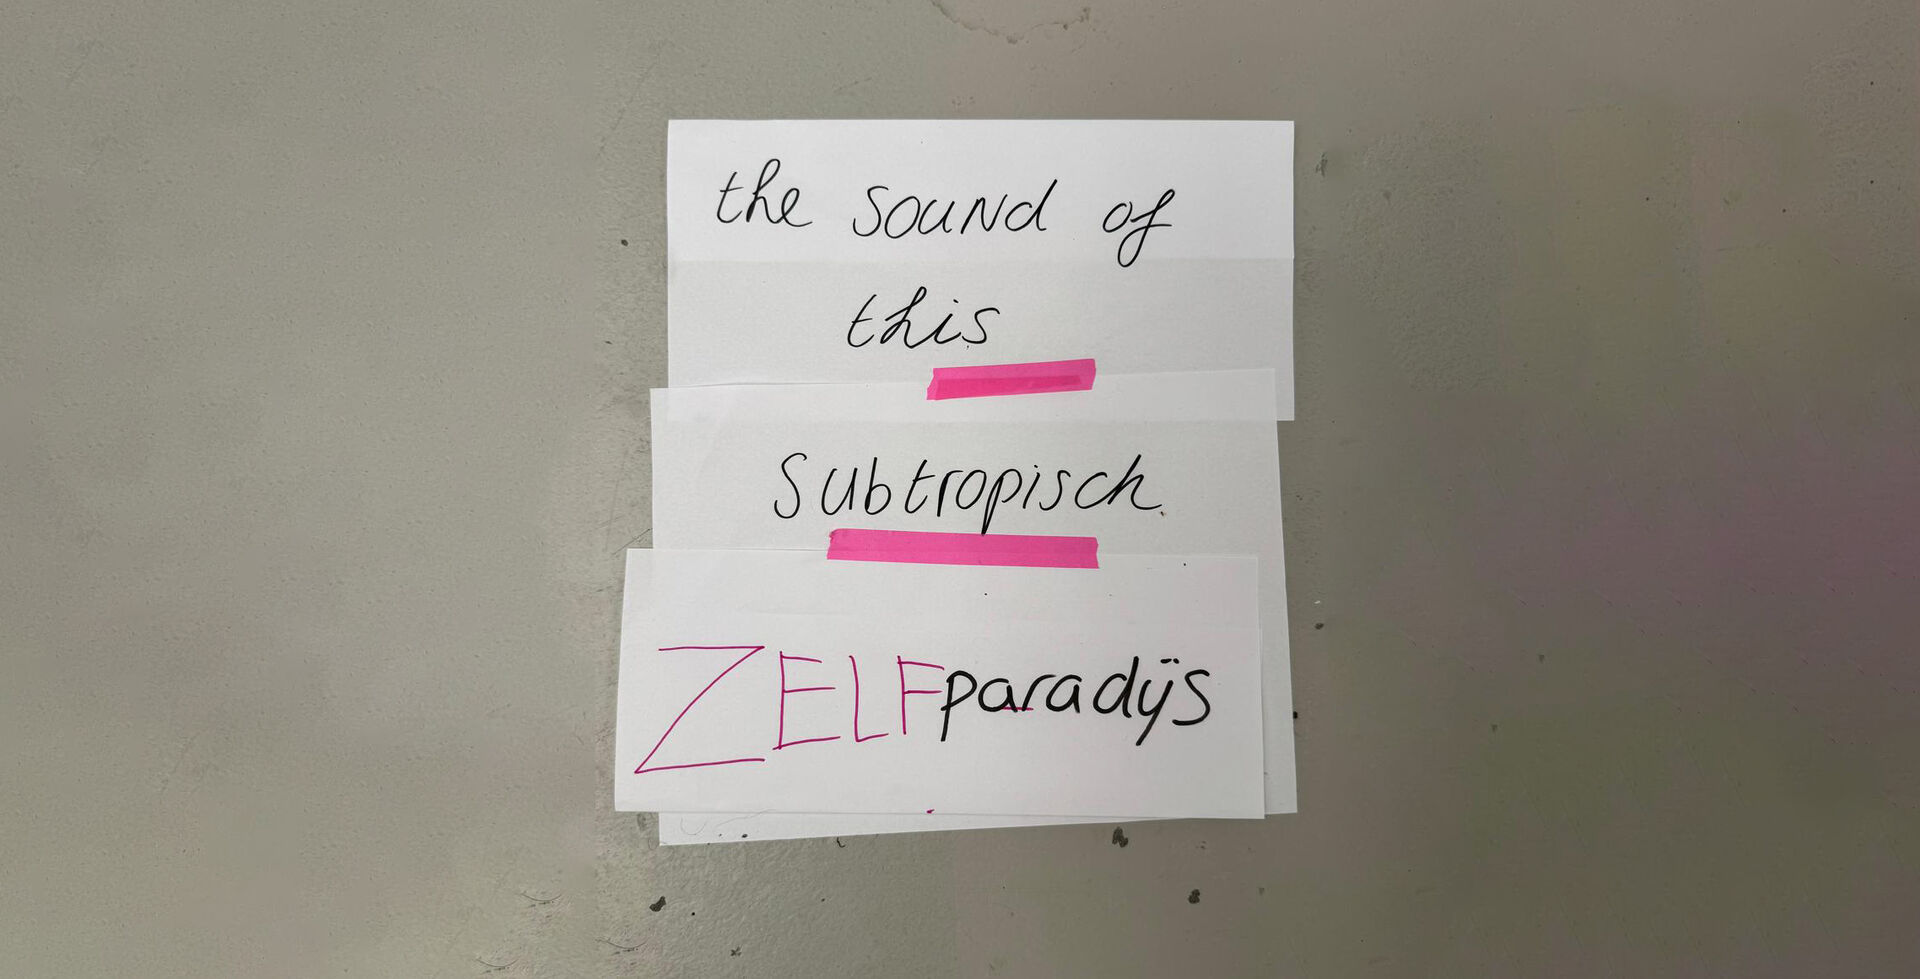 the sound of
this
Subtropisch
ZELFparadijs